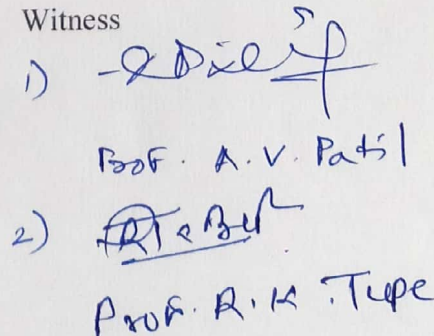 Witness
1)
Prof. A.V. Patil
2)
Prof. R.K. Tupe